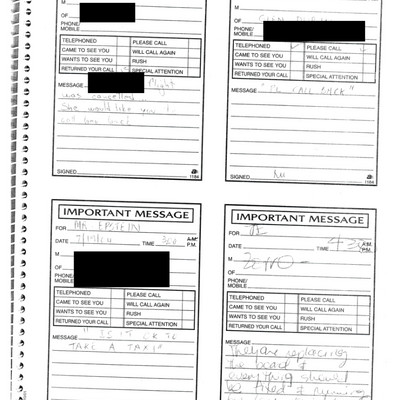 M
OF
PHONE/
MOBILE
TELEPHONED PLEASE CALL
CAME TO SEE YOU WILL CALL AGAIN
WANTS TO SEE YOU RUSH
RETURNED YOUR CALL SPECIAL ATTENTION
MESSAGE Flight
was cancelled.
She would like you to
call her back
SIGNED
1184
OF
PHONE/
MOBILE
TELEPHONED PLEASE CALL
CAME TO SEE YOU WILL CALL AGAIN
WANTS TO SEE YOU RUSH
RETURNED YOUR CALL SPECIAL ATTENTION
MESSAGE "PL CALL BACK"
SIGNED
1184
IMPORTANT MESSAGE
FOR MR EPSTEIN
DATE TIME A.M.
P.M.
M
OF
PHONE/
MOBILE
TELEPHONED PLEASE CALL
CAME TO SEE YOU WILL CALL AGAIN
WANTS TO SEE YOU RUSH
RETURNED YOUR CALL SPECIAL ATTENTION
MESSAGE "IS IT OK TO
TAKE A TAXI"
IMPORTANT MESSAGE
FOR JE
DATE TIME 4:30 A.M.
P.M.
M
OF
PHONE/
MOBILE
TELEPHONED PLEASE CALL
CAME TO SEE YOU WILL CALL AGAIN
WANTS TO SEE YOU RUSH
RETURNED YOUR CALL SPECIAL ATTENTION
MESSAGE
They are replacing
the board &
everything should
be fixed & running